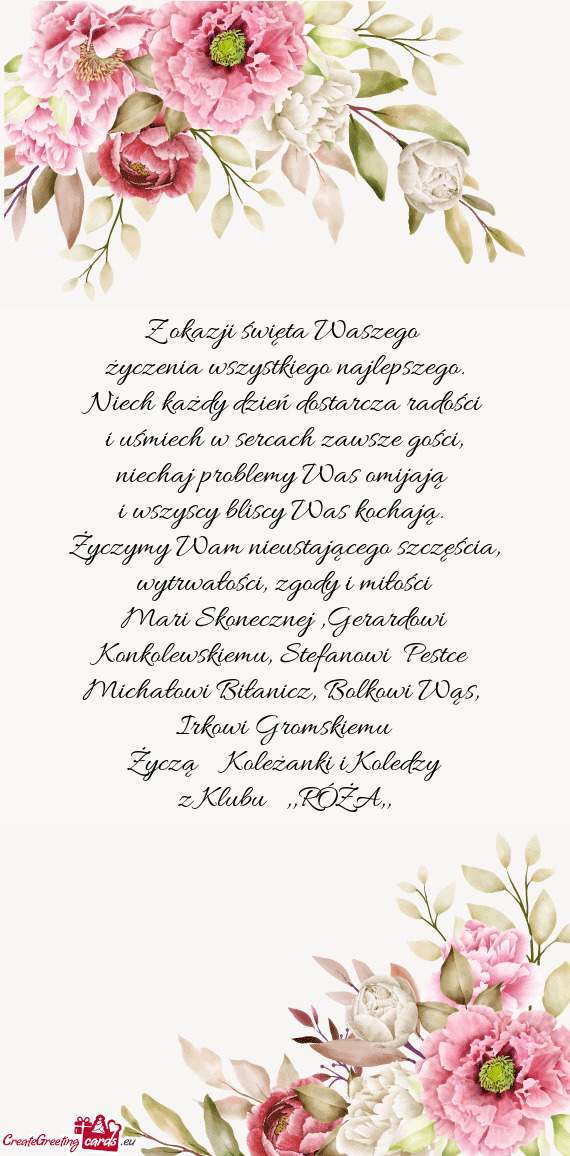 Z okazji święta Waszego
życzenia wszystkiego najlepszego.
Niech każdy dzień dostarcza radości
i uśmiech w sercach zawsze gości,
niechaj problemy Was omijają
i wszyscy bliscy Was kochają.
Życzymy Wam nieustającego szczęścia,
wytrwałości, zgody i miłości
Mari Skonecznej ,Gerardowi
Konkolewskiemu, Stefanowi Pestce
Michałowi Biłanicz, Bolkowi Wąs,
Irkowi Gromskiemu
Życzą Koleżanki i Koledzy
z Klubu ,,RÓŻA,,
CreateGreeting cards .eu